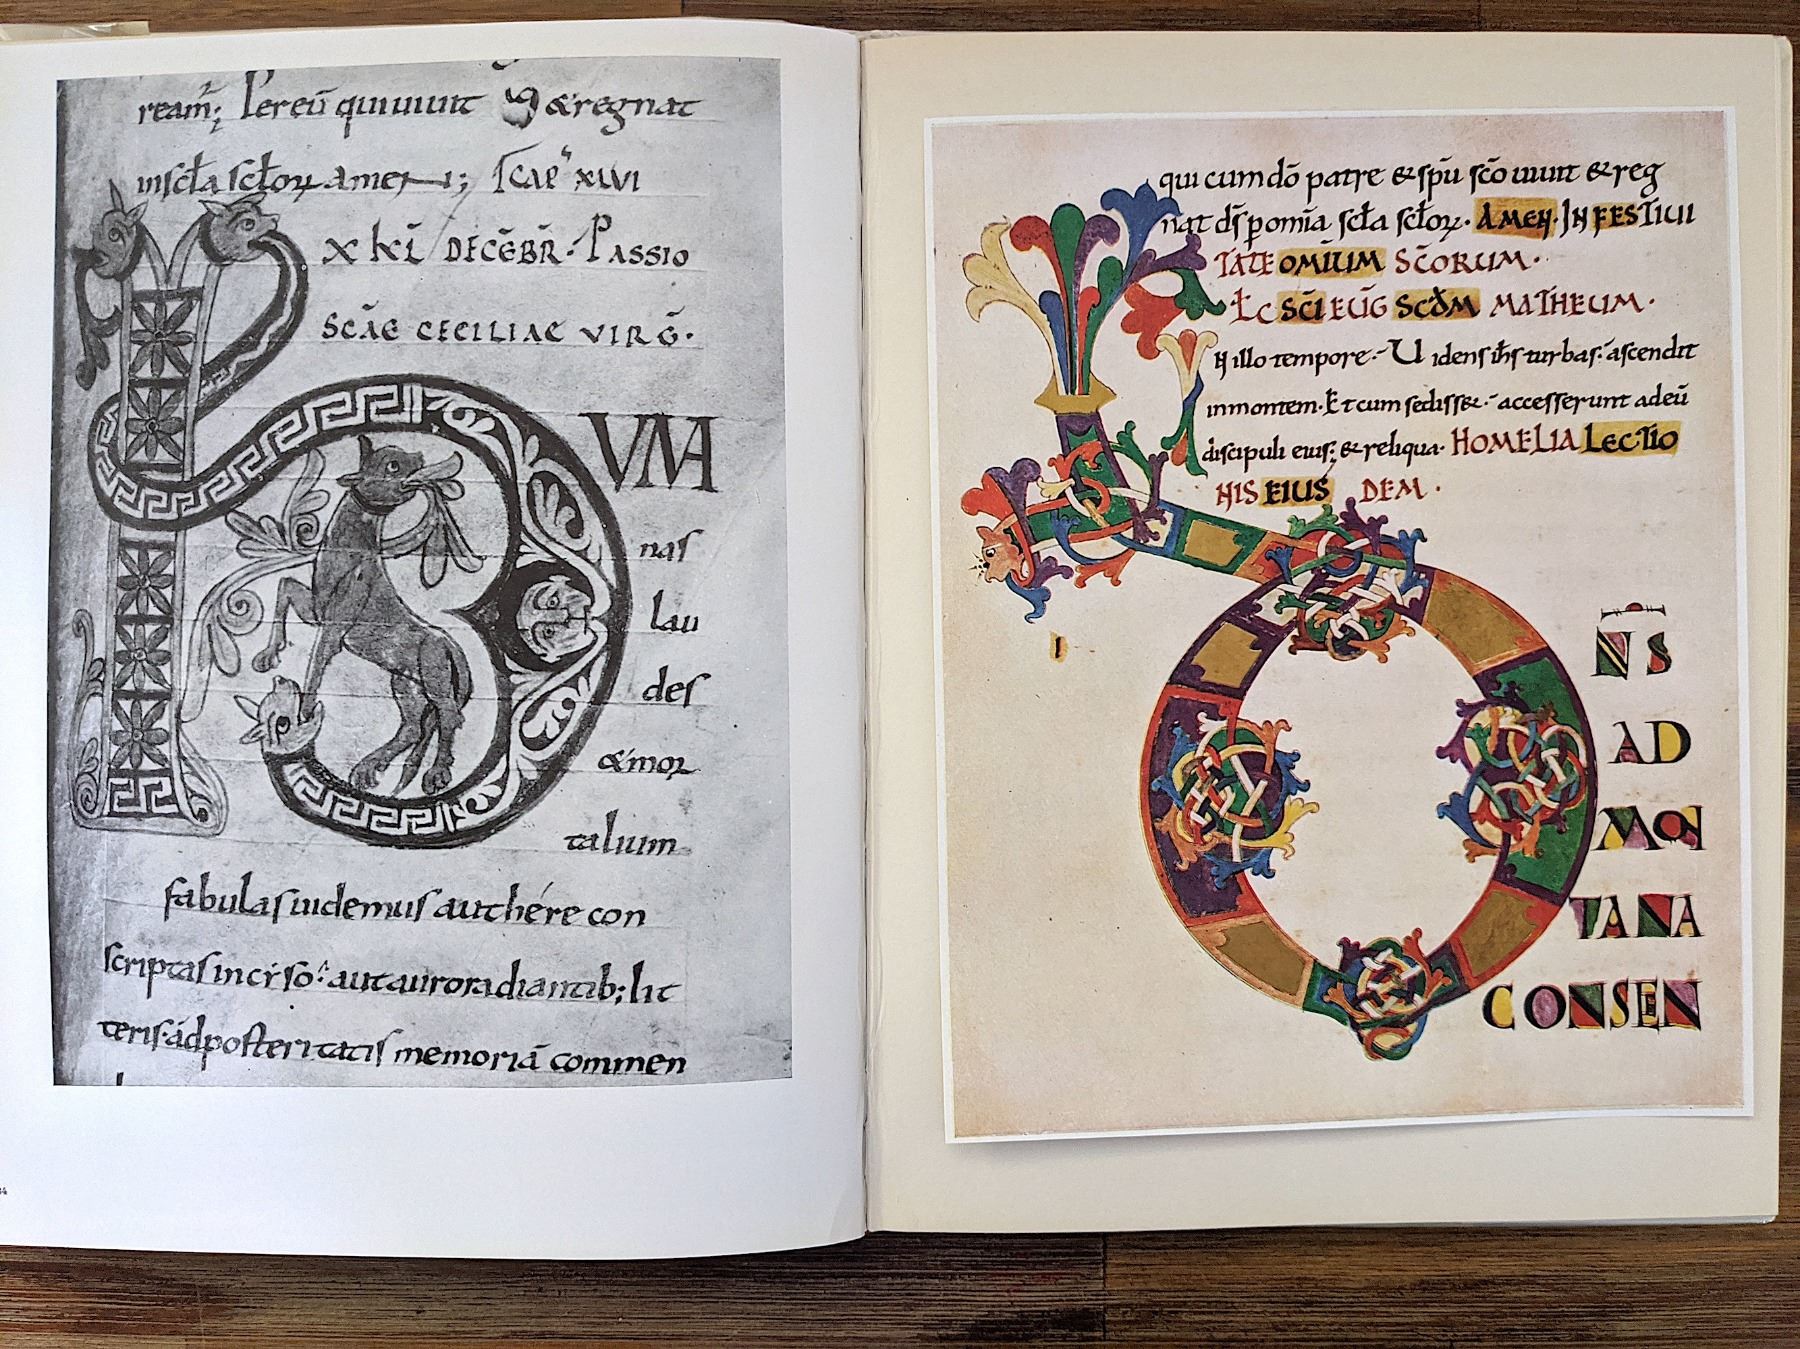 ream̄; Pereū quiuiuit &regnat
inscl̄a scl̄oꝝ amen; CAP XLVI
X kł DECĒBR̄· PASSIO
SCĀE CECILIAE VIRḠ·
HUMA
nas
lau
des
&moꝛ
talium
fabulas uidemus aut hére con
scriptas incr̄so· aut auroradiantib; lit
teris· ád posteritatis memoriā commen
qui cum dō patre &sp̄u sc̄o uiuit &reg
nat d̄s p om̄ia scl̄a scl̄oꝝ· AMEN· IN FESTIUI
TATE OMIUM SC̄ORUM·
Ł̄C SC̄I EUḠ SCD̄M MATHEUM·
IN illo tempore· Uidens ih̄s turbas· ascendit
inmontem· Et cum sediss&· accesserunt adeū
discipuli eius; &reliqua· HOMELIA LECTIO
NIS EIUS DEM·
I
D
N̄S
AD
MON
TANA
CONSEN